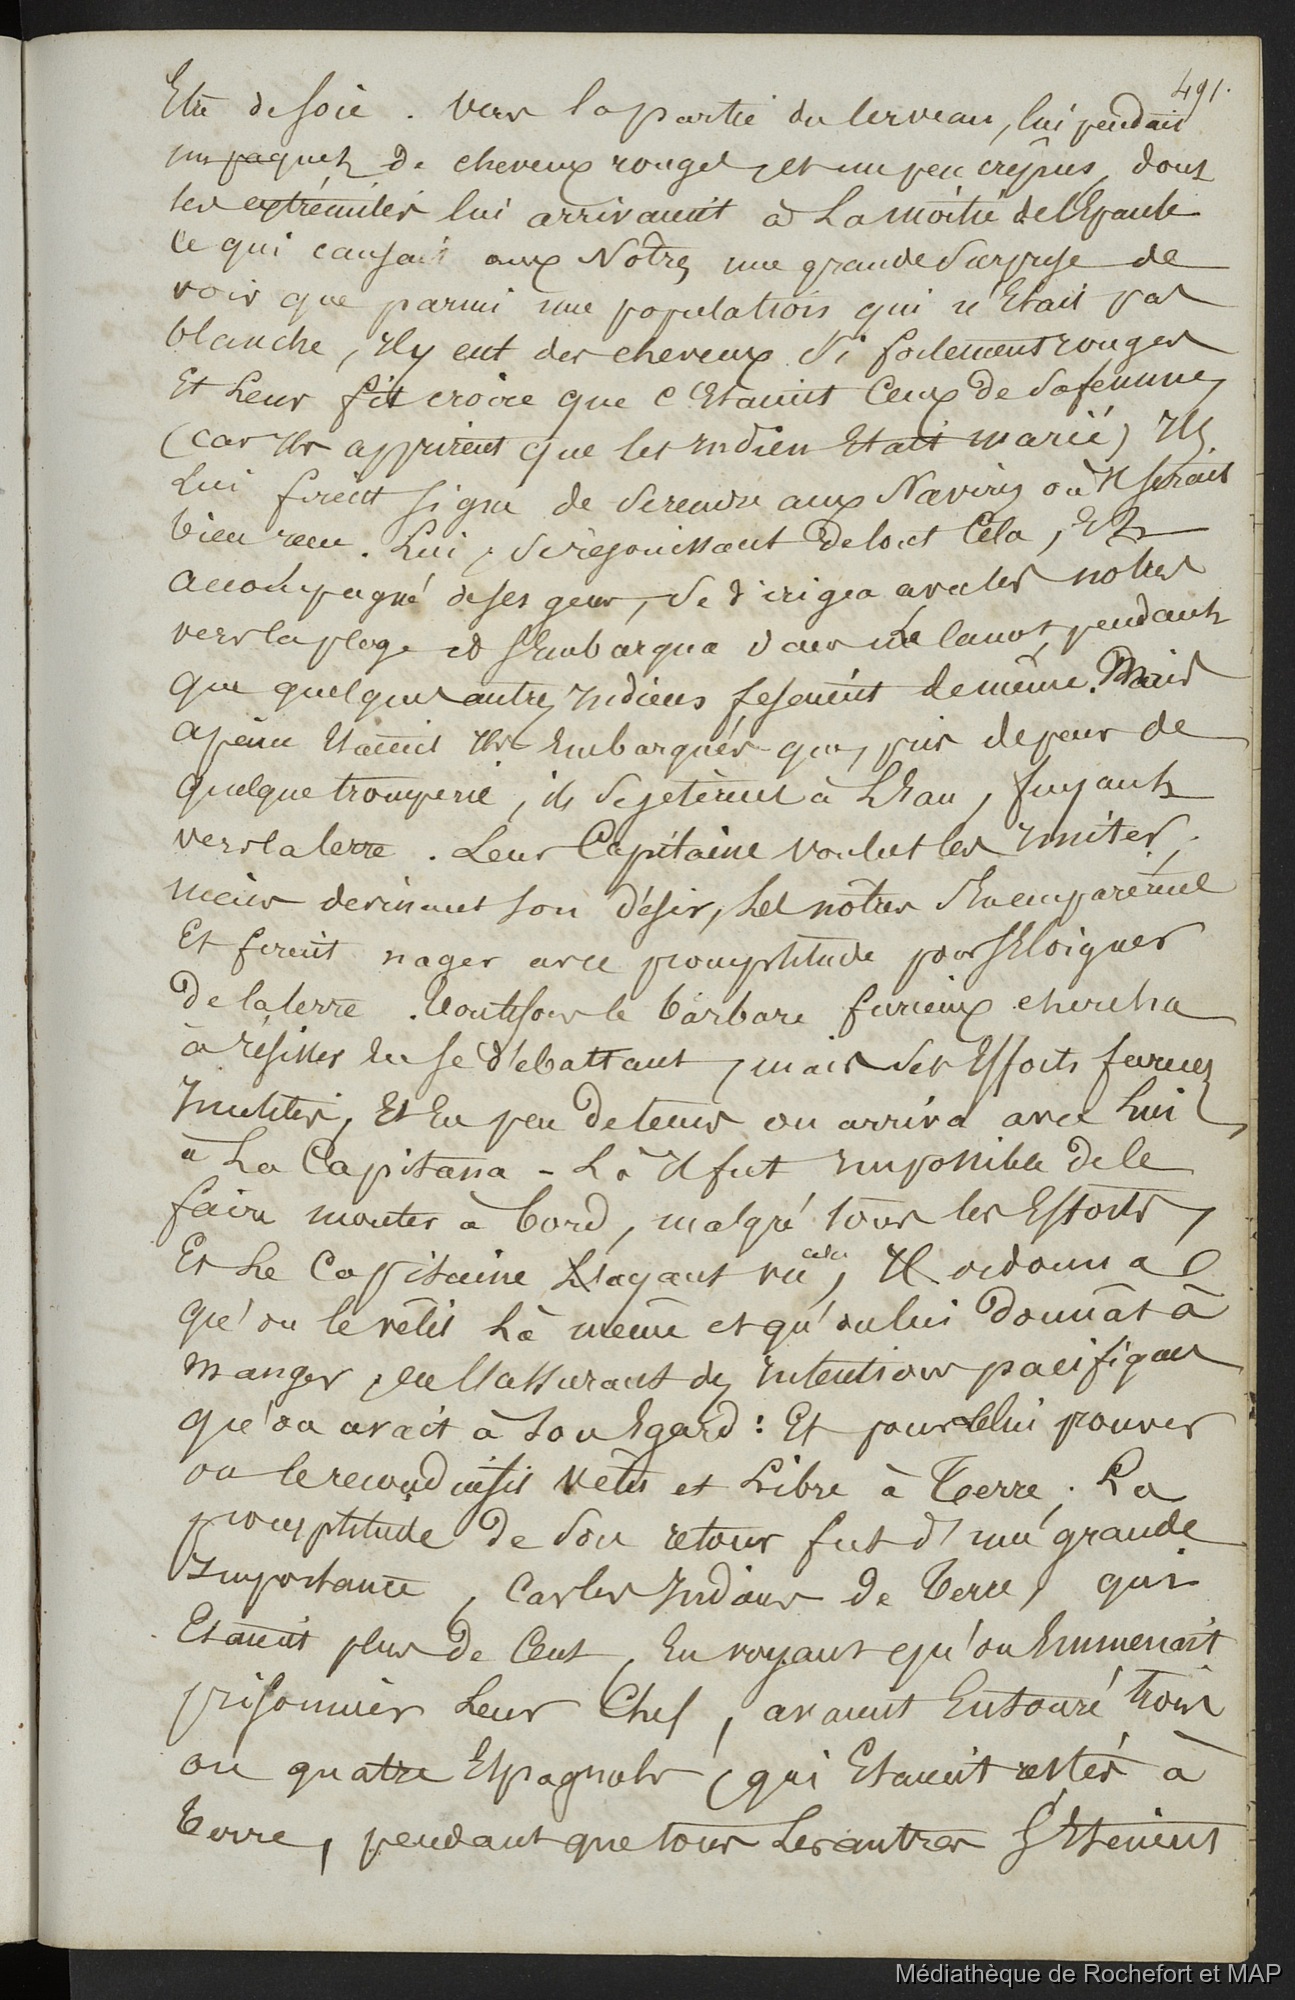 491.
Etre de soie. Vers la partie du Cerveau, lui pendait
un paquet de cheveux rouges, et un peu crêpus, dont
les extrémités lui arrivaient à La moitié de l'Epaule
Ce qui causait aux Notres une grande Surprise de
voir que parmi une population qui n'Etait pas
blanche, Il y eut des cheveux Si fortement rouges
Et Leur fit croire que c'Etaient Ceux de Sa femme,
(car Ils apprirent que les Indien Etait marié) Ils
Lui firent signe de Se rendre aux Navires où Il serait
bien recu. Lui, Se réjouissant de tout Cela, Et
accompagné de ses gens, Se dirigea avec les notres
vers la plage et S'Embarqua dans le Canot, pendant
que quelques autres Indiens fesaient de même. Mais
a peine Etaient Ils Embarqués que, pris de peur de
quelque tromperie, ils Se jetèrent à L'Eau, fuyant
vers la terre. Leur Capitaine voulut les Imiter,
mais devinant son désir, Les notres S'En emparèrent
Et firent nager avec promptitude pour S'Eloigner
De la terre. Toutefois le barbare furieux chercha
à résister En Se débattant, mais Ses Efforts furent
Inutiles, Et En peu De tems on arriva avec Lui
à La Capitana - Là Il fut Impossible de le
faire monter à bord, malgré tous les Efforts,
Et Le Capitaine ayant vu cela, Il ordonna
qu'on le vêtit Là même et qu'on lui Donnât à
manger, En L'assurant des Intentions pacifiques
qu'on avait à Son Egard: Et pour le lui prouver
on le reconduisit vêtu et Libre à Terre. La
promptitude De Son retour fut d'une grande
Importance, Car les Indiens De Terre, qui
Etaient plus De Cent, En voyant qu'on Emmenait
prisonnier Leur Chef, avaient Entouré trois
ou quatre Espagnols (qui Etaient restés à
Terre, pendant que tous Les autres S'Etaient
Médiathèque de Rochefort et MAP